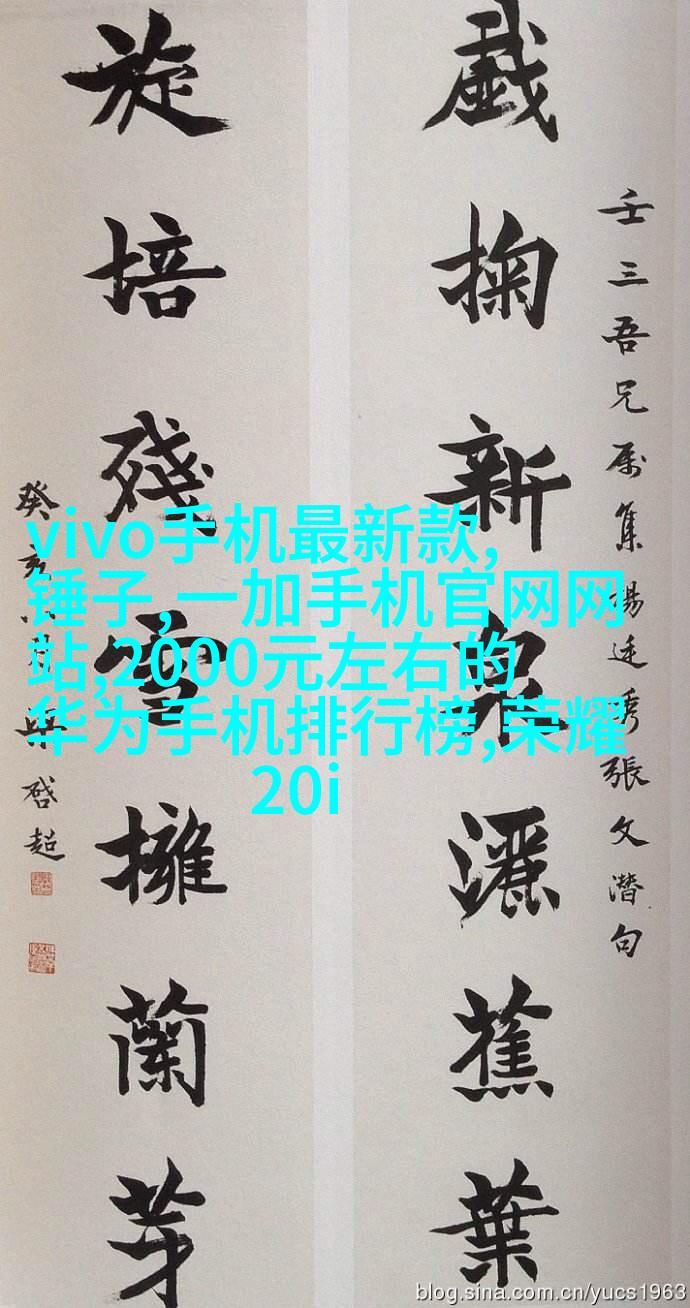 壬三吾兄属集楊廷秀張文潛句
戲掬新泉灑蕉葉
旋培殘雪擁蘭芽
癸亥梁啓超
vivo手机最新款,
锤子,一加手机官网网
站,2000元左右的
华为手机排行榜,荣耀
20i
blog.sina.com.cn/yucs1963